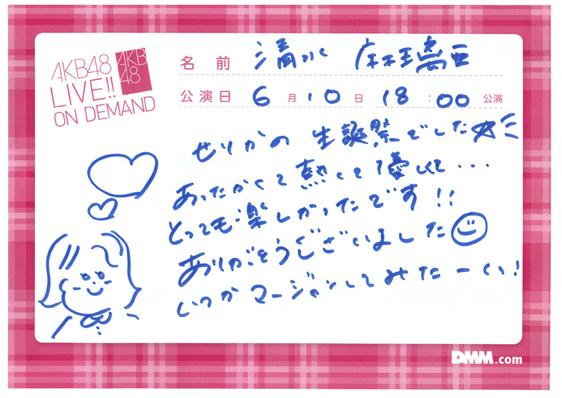 AKB48
LIVE!!
ON DEMAND
AKB
48
名前 清水 麻璃亜
公演日 6月10日 18:00公演
せりかの生誕祭でした☆ミ
あったかくて熱くて優しくて...
とっても楽しかったです!!
ありがとうございました
いつかマージャンしてみたーい!
DMM.com